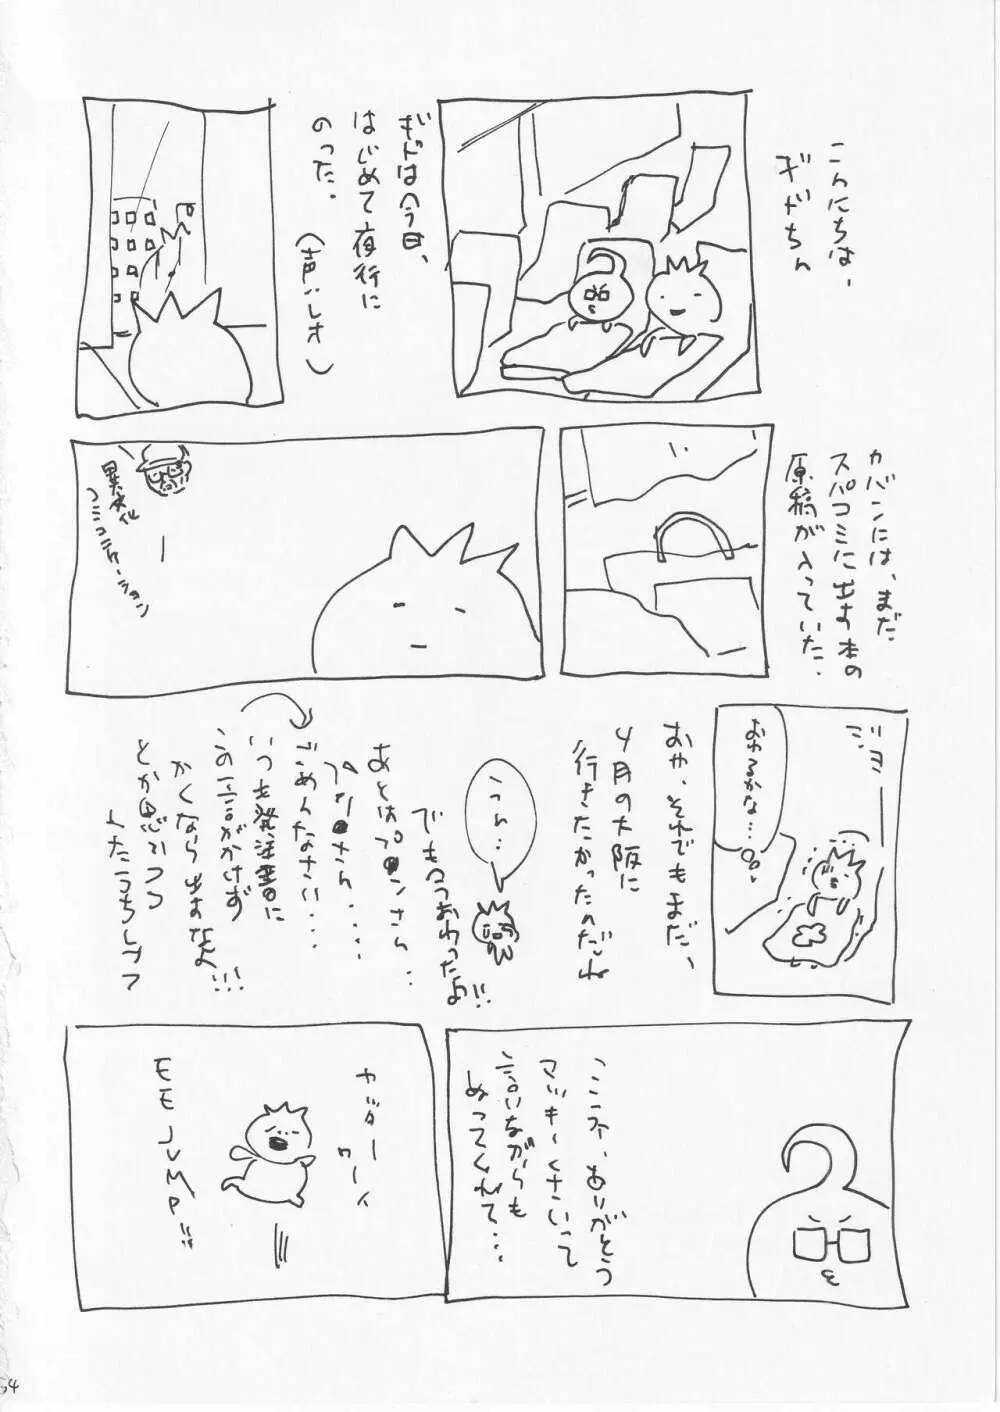 こんにちは、
ギドちん
ギドは今日、
はじめて夜行に
のった。
(声:レオ)
カバンには、まだ
スパコミに出す本の
原稿が入っていた。
コミュニケーション
ジョ
おわるかな…
おや、それでもまだ、
4月の大阪に
行きたかったのだね
でも
おわったよ!!
あとは
さん…
さん……
ごめんなさい…
いつも発注書に
この一言がかけず
かくなら出すなよ!!!
とか思いつつ
くたうちしプフ
ありがとう
マッキーくさいって
言いながらも
ぬってくれて…
カッター
ワーイ
EE JUMP!!